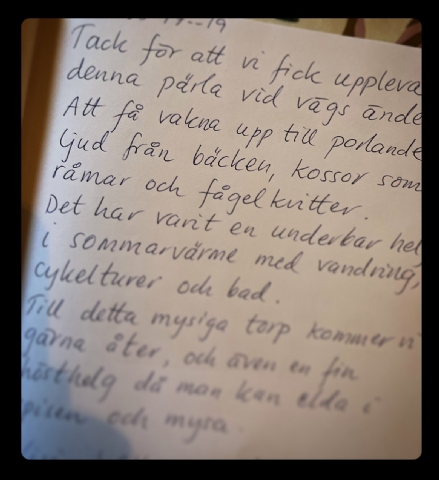 Tack för att vi fick uppleva
denna pärla vid vägs ände
Att få vakna upp till porlande
ljud från bäcken, kossor som
råmar och fågelkvitter.
Det har varit en underbar hel
i sommarvärme med vandring,
cykelturer och bad.
Till detta mysiga torp kommer vi
gärna åter, och även en fin
hösthelg då man kan elda i
spisen och mysa.